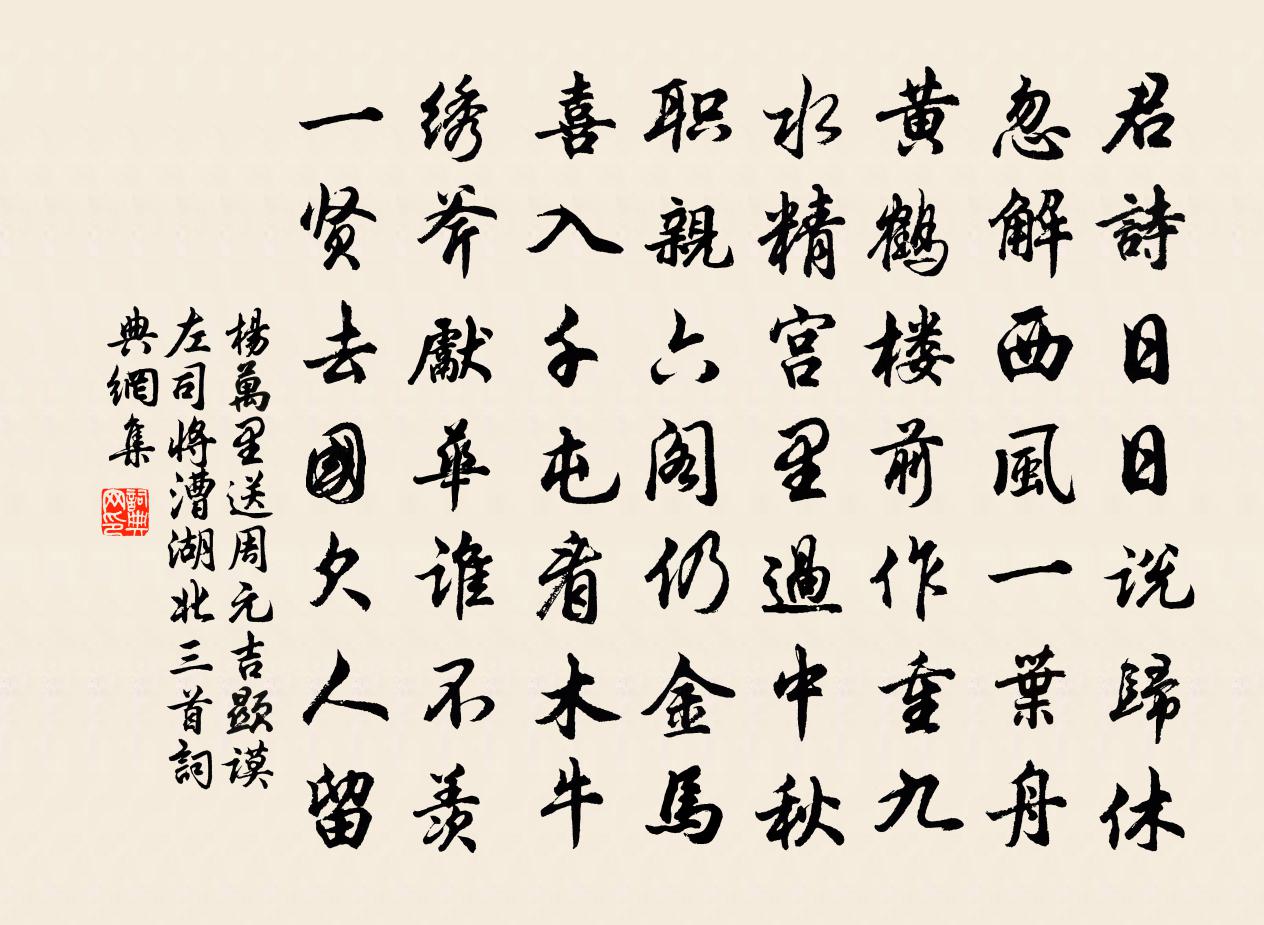 君詩日日说歸休
忽解西風一葉舟
黄鶴楼前作重九
水精宫里過中秋
职親六阁仍金馬
喜入千屯看木牛
绣斧獻華谁不羡
一贤去國欠人留
楊萬里送周元吉顕谟
左司将漕湖北三首詞
典網集
詞典网印